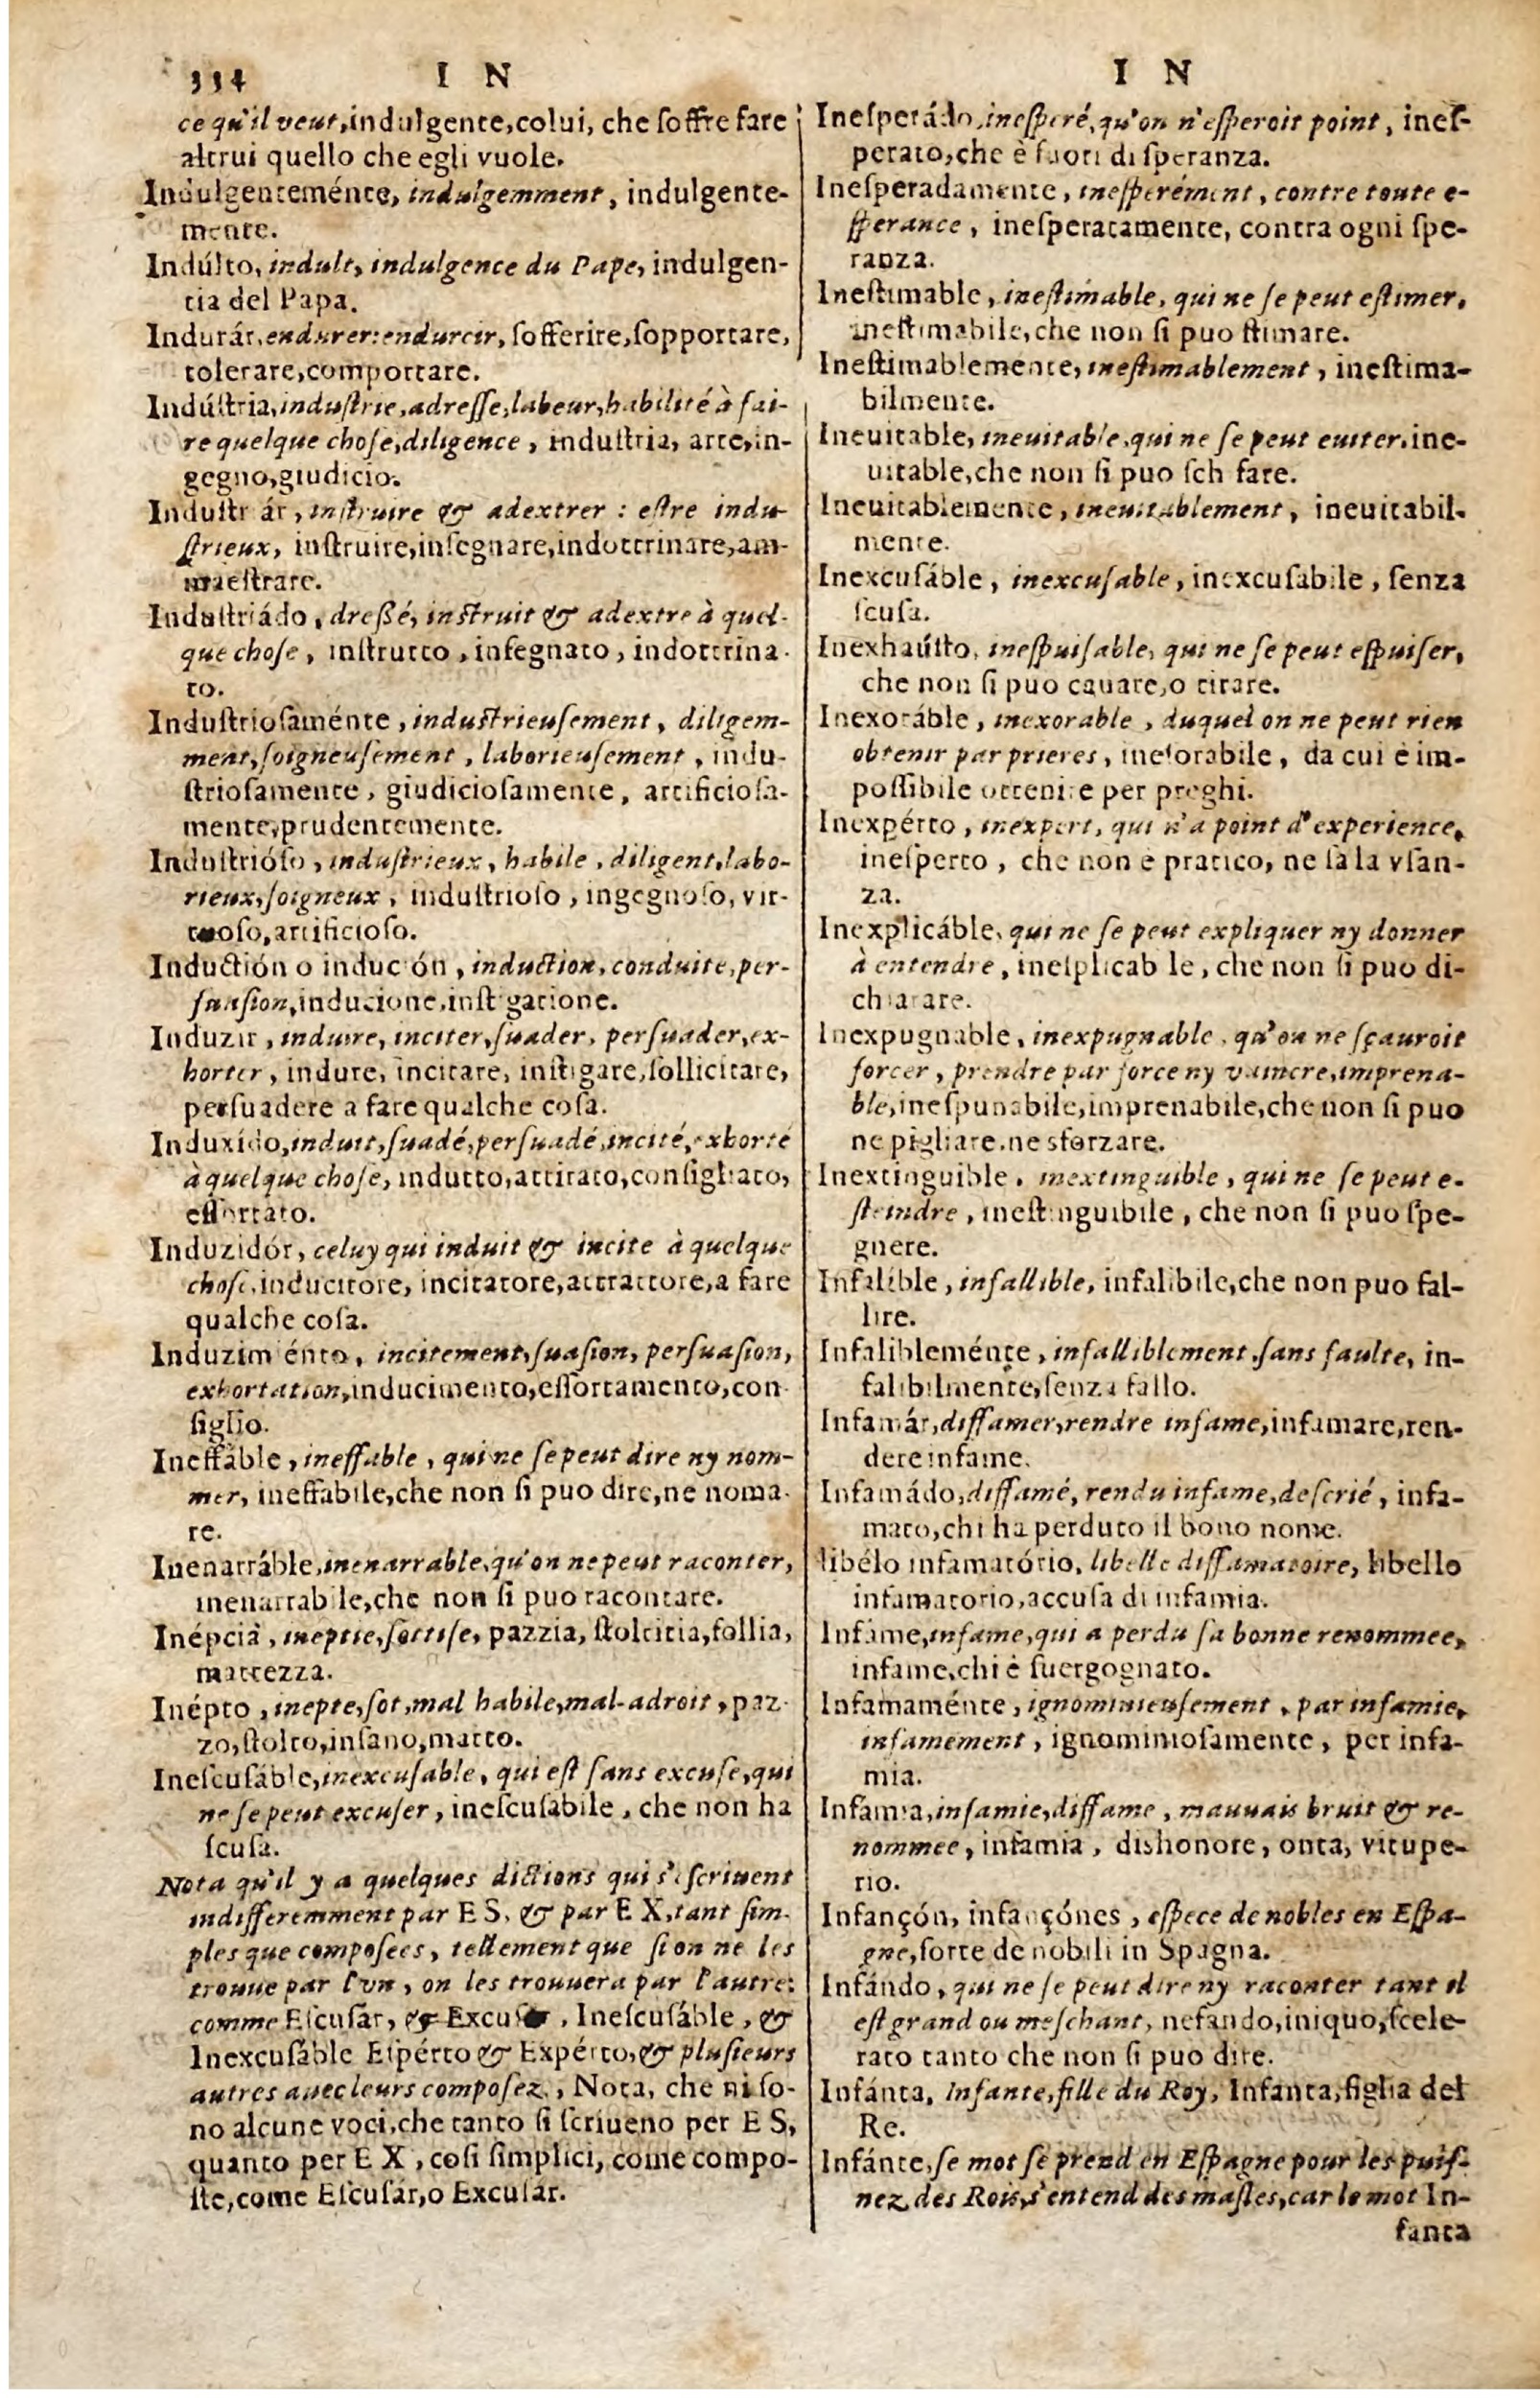 334 I N
ce qu'il veut, indulgente, colui, che soffre fare
altrui quello che egli vuole.
Indulgenteménte, indulgemment, indulgente-
mente.
Indúlto, indult, indulgence du Pape, indulgen-
tia del Papa.
Indurár, endurer: endurcir, sofferire, sopportare,
tolerare, comportare.
Indústria, industrie, adresse, labeur, habilité à fai-
re quelque chose, diligence, industria, arte, in-
gegno, giudicio.
Industriár, instruire & adextrer : estre indu-
strieux, instruire, insegnare, indottrinare, am-
maestrare.
Industriádo, dreßé, instruit & adextre à quel-
que chose, instrutto, insegnato, indottrina-
to.
Industriosaménte, industrieusement, diligem-
ment, soigneusement, laborieusement, indu-
striosamente, giudiciosamente, artificiosa-
mente, prudentemente.
Industrióso, industrieux, habile, diligent, labo-
rieux, soigneux, industrioso, ingegnoso, vir-
tuoso, artificioso.
Inductión o indución, induction, conduite, per-
suasion, inducione, instigatione.
Induzir, induire, inciter, suader, persuader, ex-
horter, indure, incitare, instigare, sollicitare,
persuadere a fare qualche cosa.
Induxído, induit, suadé, persuadé, incité, exhorté
à quelque chose, indutto, attirato, consigliato,
essortato.
Induzidór, celuy qui induit & incite à quelque
chose, inducitore, incitatore, attrattore, a fare
qualche cosa.
Induzimiénto, incitement, suasion, persuasion,
exhortation, inducimento, essortamento, con-
siglio.
Ineffáble, ineffable, qui ne se peut dire ny nom-
mer, ineffabile, che non si puo dire, ne noma-
re.
Inenarráble, inenarrable, qu'on ne peut raconter,
inenarrabile, che non si puo racontare.
Inépcia, ineptie, sottise, pazzia, stoltitia, follia,
mattezza.
Inépto, inepte, sot, mal habile, mal-adroit, paz-
zo, stolto, insano, matto.
Inescusáble, inexcusable, qui est sans excuse, qui
ne se peut excuser, inescusabile, che non ha
scusa.
Nota qu'il y a quelques dictions qui s'escriuent
indifferemment par E S, & par E X, tant sim-
ples que composees, tellement que si on ne les
trouue par l'vn, on les trouuera par l'autre:
comme Escusár, & Excusár, Inescusáble, &
Inexcusáble Espérto & Expérto, & plusieurs
autres auec leurs composez, Nota, che ni so-
no alcune voci, che tanto si scriueno per E S,
quanto per E X, cosi simplici, come compo-
ste, come Escusár, o Excusar.
I N
Inesperádo, inesperé, qu'on n'esperoit point, ines-
perato, che è fuori di speranza.
Inesperadamente, inesperément, contre toute e-
sperance, inesperatamente, contra ogni spe-
ranza.
Inestimable, inestimable, qui ne se peut estimer,
inestimabile, che non si puo stimare.
Inestimablemente, inestimablement, inestima-
bilmente.
Ineuitable, ineuitable, qui ne se peut euiter, ine-
uitable, che non si puo sch fare.
Ineuitablemente, ineuitablement, ineuitabil-
mente.
Inexcusáble, inexcusable, inexcusabile, senza
scusa.
Inexhaústo, inespuisable, qui ne se peut espuiser,
che non si puo cauare, o tirare.
Inexoráble, inexorable, duquel on ne peut rien
obtenir par prieres, inesorabile, da cui è im-
possibile ottenire per preghi.
Inexpérto, inexpert, qui n'a point d'experience,
inesperto, che non è pratico, ne sà la vsan-
za.
Inexplicáble, qui ne se peut expliquer ny donner
à entendre, inesplicab le, che non si puo di-
chiarare.
Inexpugnable, inexpugnable, qu'on ne sçauroit
forcer, prendre par force ny vaincre, imprena-
ble, inespunabile, imprenabile, che non si puo
ne pigliare, ne sforzare.
Inextinguible, inextinguible, qui ne se peut e-
steindre, inestinguibile, che non si puo spe-
gnere.
Infalíble, infallible, infalibile, che non puo fal-
lire.
Infalibleménte, infalliblement, sans faulte, in-
falibilmente, senza fallo.
Infamár, diffamer, rendre infame, infamare, ren-
dere infame.
Infamádo, diffamé, rendu infame, descrié, infa-
mato, chi ha perduto il bono nome.
libélo infamatório, libelle diffamatoire, libello
infamatorio, accusa di infamia.
Infáme, infame, qui a perdu sa bonne renommee,
infame, chi è suergognato.
Infamaménte, ignominieusement, par infamie,
infamement, ignominiosamente, per infa-
mia.
Infamia, infamie, diffame, mauuais bruit & re-
nommee, infamia, dishonore, onta, vitupe-
rio.
Infançón, infançónes, espece de nobles en Espa-
gne, sorte de nobili in Spagna.
Infándo, qui ne se peut dire ny raconter tant il
est grand ou meschant, nefando, iniquo, scele-
rato tanto che non si puo dire.
Infánta, Infante, fille du Roy, Infanta, figlia del
Re.
Infánte, se mot se prend en Espagne pour les puis-
nez des Rois, s'entend des masles, car le mot In-
fanta